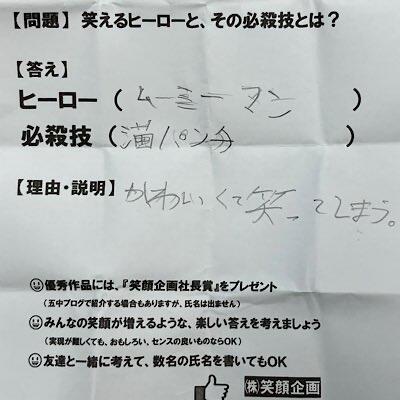 【問題】 笑えるヒーローと、その必殺技とは？
【答え】
ヒーロー（ムーミーマン）
必殺技（猫パンチ）
【理由・説明】かわいくて笑ってしまう。
優秀作品には、『笑顔企画社長賞』をプレゼント
（五中ブログで紹介する場合もありますが、氏名は出ません）
みんなの笑顔が増えるような、楽しい答えを考えましょう
（実現が難しくても、おもしろい、センスの良いものならOK）
友達と一緒に考えて、数名の氏名を書いてもOK
㈱笑顔企画